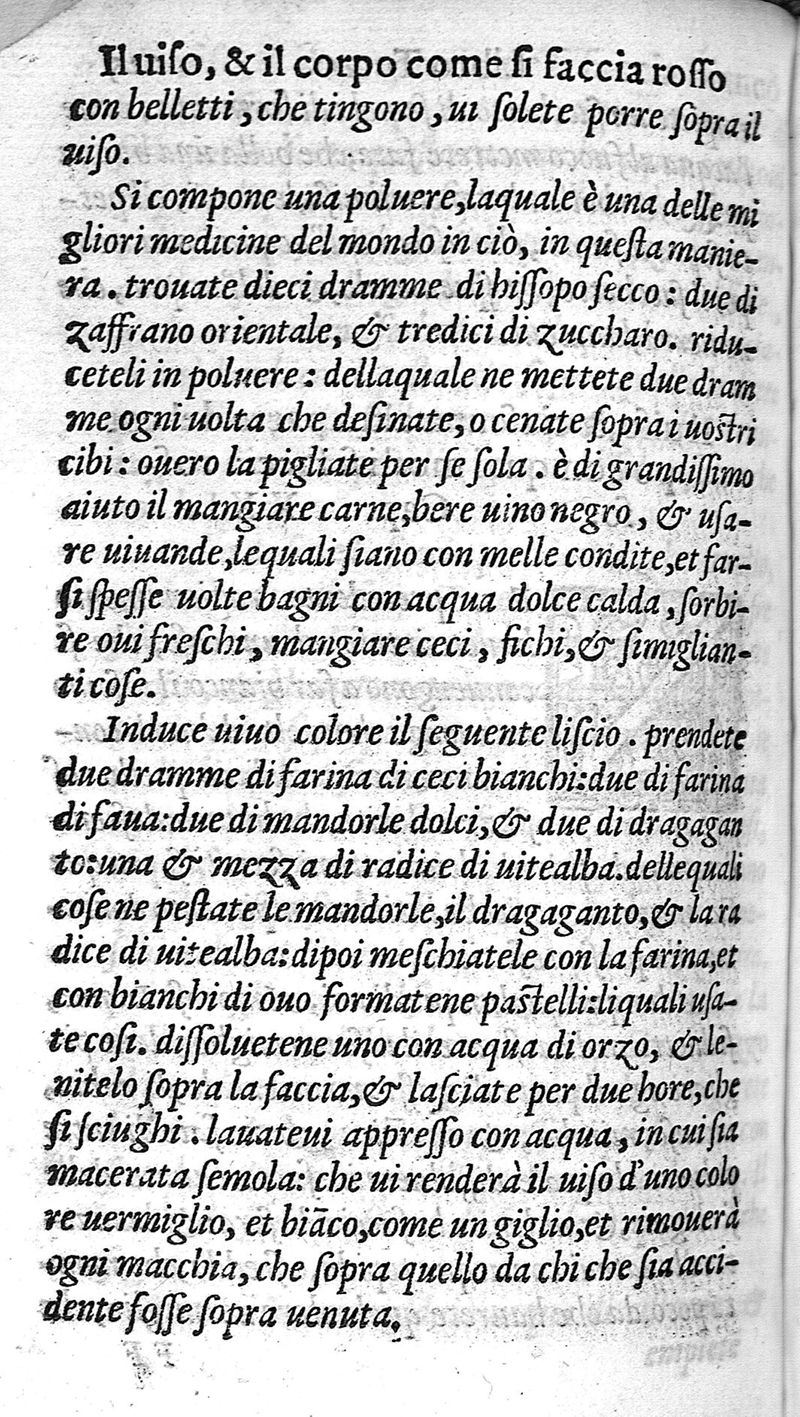 Il uiſo, & il corpo come ſi faccia roſſo
con belletti, che tingono, ui ſolete porre ſopra il
uiſo.
Si compone una poluere, laquale è una delle mi
gliori medicine del mondo in ciò, in queſta manie-
ra. trouate dieci dramme di hiſſopo ſecco: due di
zaffrano orientale, & tredici di zuccharo. ridu-
ceteli in poluere: dellaquale ne mettete due dram
me ogni uolta che deſinate, o cenate ſopra i uoſtri
cibi: ouero la pigliate per ſe ſola. è di grandiſſimo
aiuto il mangiare carne, bere uino negro, & uſa-
re uiuande, lequali ſiano con melle condite, et far-
ſi ſpeſſe uolte bagni con acqua dolce calda, ſorbi-
re oui freſchi, mangiare ceci, fichi, & ſimiglian-
ti coſe.
Induce uiuo colore il ſeguente liſcio. prendete
due dramme di farina di ceci bianchi: due di farina
di faua: due di mandorle dolci, & due di dragagan
to: una & mezza di radice di uitealba. dellequali
coſe ne peſtate le mandorle, il dragaganto, & la ra
dice di uitealba: dipoi meſchiatele con la farina, et
con bianchi di ouo formatene paſtelli: liquali uſa-
te coſi. diſſoluetene uno con acqua di orzo, & le-
nitelo ſopra la faccia, & laſciate per due hore, che
ſi ſciughi. lauateui appreſſo con acqua, in cui ſia
macerata ſemola: che ui renderà il uiſo d'uno colo
re uermiglio, et biāco, come un giglio, et rimouerà
ogni macchia, che ſopra quello da chi che ſia acci-
dente foſſe ſopra uenuta.